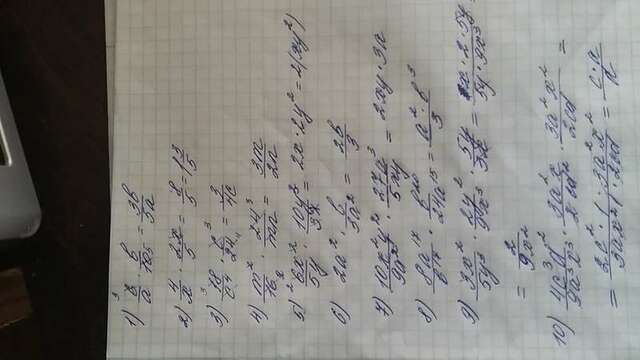 1) 6/a · b/10 5 = 3b/5a
2) 4/x · 2x/5 = 8/5 = 1 3/5
3) 18/c⁴ · c³/24 = 3/4c
4) m²/16 · 24/mn = 3m/2n
5) 6x²/5y · 10y³/3x = 2x · 2y² = 2(xy²)
6) 2a² · b/3a² = 2b/3
7) 10x²y²/9a² · 27a³/5xy = 2xy · 3a
8) 8a¹⁷/b¹⁷ · b²⁰/24a¹⁵ = a² · b³/3
9) 3x²/5y³ · 2y²/9x³ · 5y/3x = x · 2 · 5y/5y · 9x³
= 2/9x²
10) 4c³d²/9a³x³ · 3a²x/2cd² · 3a²x²/2cd =
= 2c² · 1 · 3a²x²/3ax² · 2cd = c · a/d